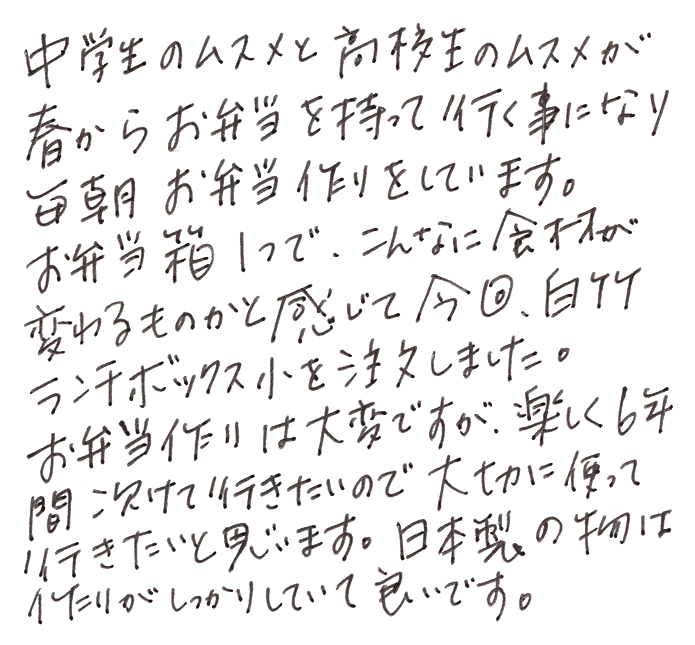 中学生のムスメと高校生のムスメが
春からお弁当を持って行く事になり
毎朝お弁当作りをしています。
お弁当箱1つで、こんなに食材が
変わるものかと感じて今回、白竹
ランチボックス小を注文しました。
お弁当作りは大変ですが、楽しく6年
間次けて行きたいので大切に使って
行きたいと思います。日本製の物は
作りがしっかりしていて良いです。